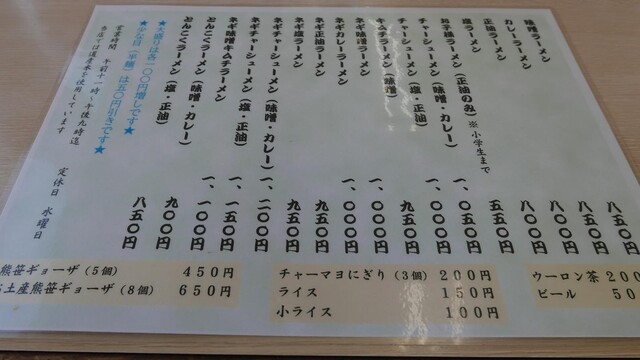 味噌ラーメン 八五〇円
カレーラーメン 八五〇円
正油ラーメン 八〇〇円
塩ラーメン 八〇〇円
お子様ラーメン(正油のみ)※小学生まで 五五〇円
チャーシューメン(味噌・カレー) 一、〇五〇円
チャーシューメン(塩・正油) 一、〇〇〇円
キムチラーメン(味噌) 九五〇円
ネギ味噌ラーメン 一、〇〇〇円
ネギカレーラーメン 一、〇〇〇円
ネギ正油ラーメン 九五〇円
ネギ塩ラーメン 九五〇円
ネギチャーシューメン(味噌・カレー) 一、二〇〇円
ネギチャーシューメン(塩・正油) 一、一五〇円
ネギ味噌キムチラーメン 一、一〇〇円
とんこくラーメン(味噌・カレー) 九〇〇円
とんこくラーメン(塩・正油) 八五〇円
★大盛りは各一〇〇円増しです★
★少な目(半麺)は五〇円引きです★
営業時間 午前十一時~午後九時迄 定休日 水曜日
当店では道産米を使用しています
熊笹ギョーザ(5個) 450円
土産熊笹ギョーザ(8個) 650円
チャーマヨにぎり(3個) 200円
ライス 150円
小ライス 100円
ウーロン茶 200
ビール 50